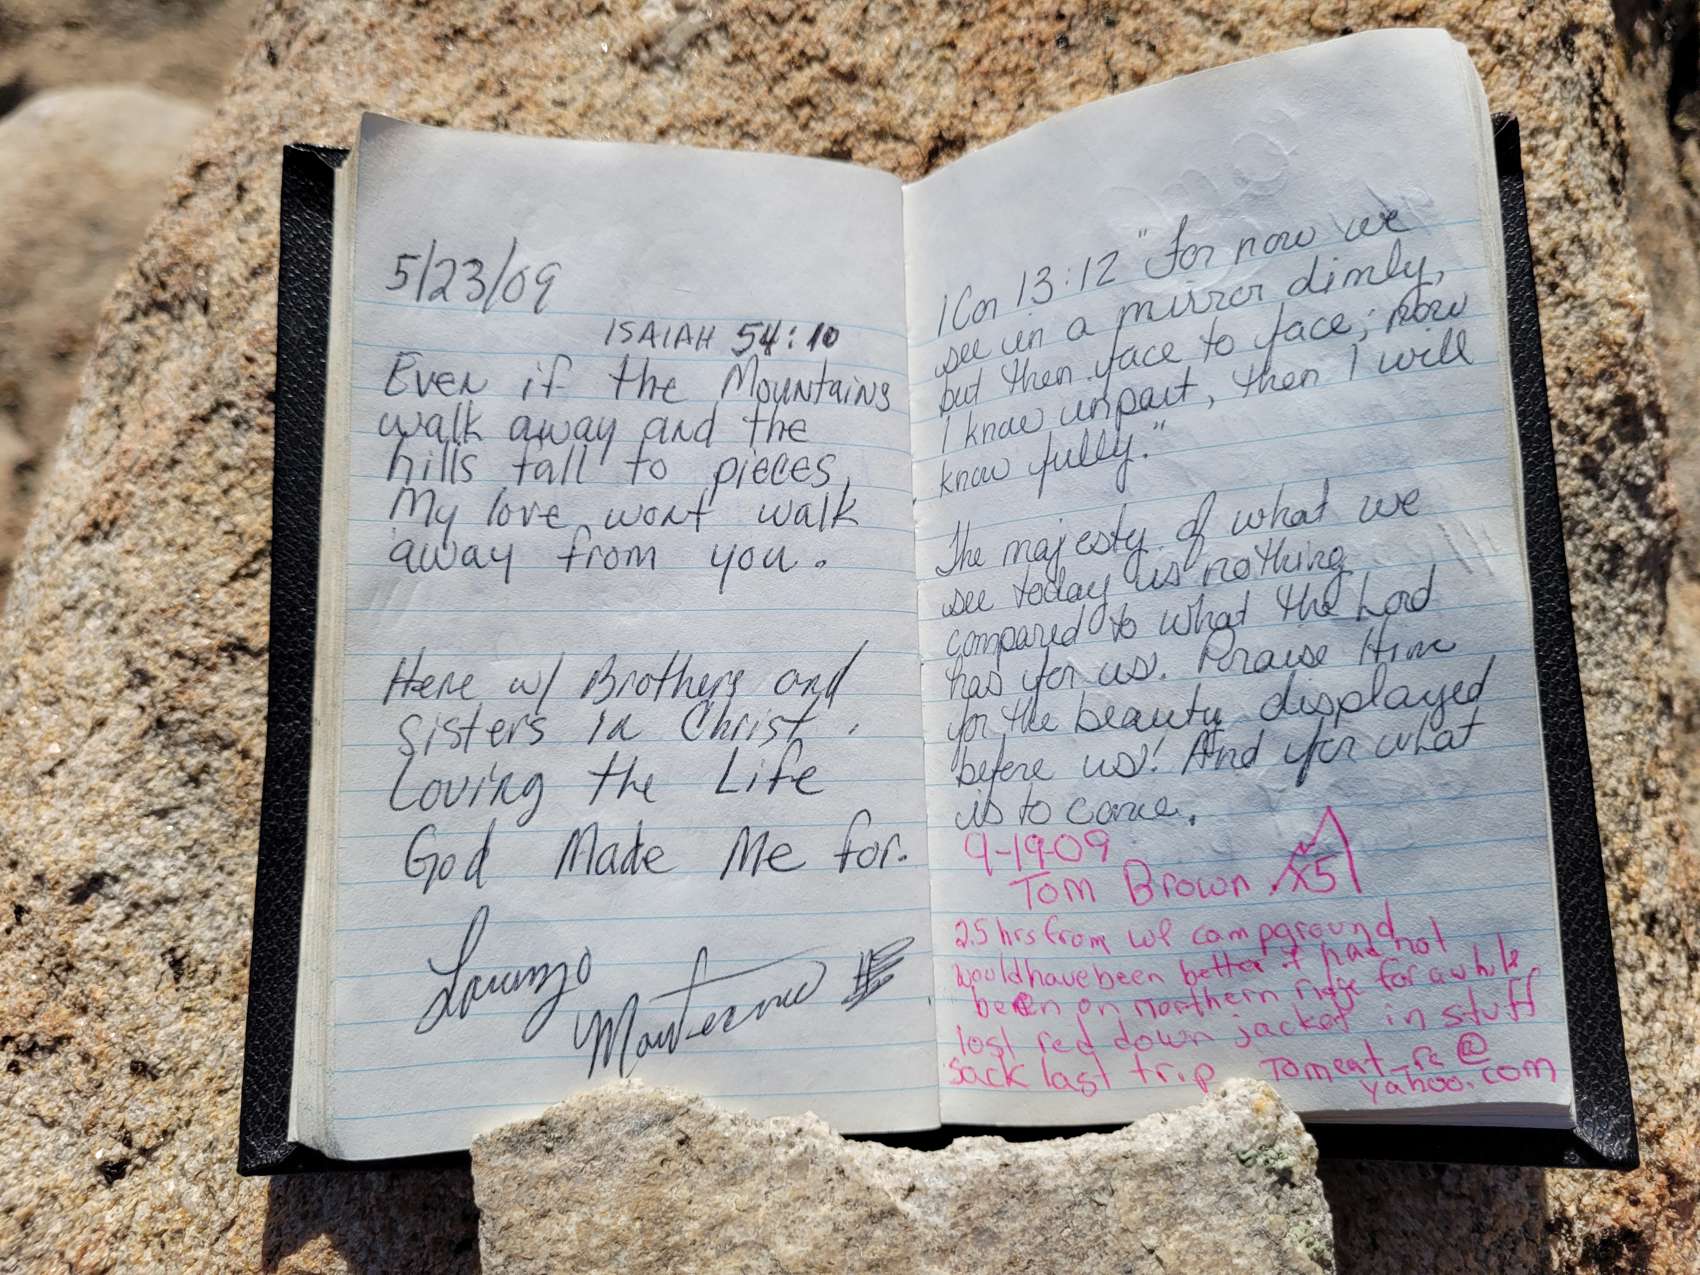 5/23/09
ISAIAH 54:10
Even if the Mountains
walk away and the
hills fall to pieces,
My love wont walk
away from you.
Here w/ Brothers and
sisters in Christ.
Loving the Life
God Made Me for.
1 Cor 13:12 "For now we
see in a mirror dimly,
but then face to face; now
I know in part, then I will
know fully."
The majesty of what we
see today is nothing
compared to what the Lord
has for us. Praise Him
for the beauty displayed
before us! And for what
is to come.
9-19-09
Tom Brown x5
2.5 hrs from wp campground
would have been better if I had not
been on northern ridge for a while
lost red down jacket in stuff
sack last trip Tomeat_rc@
yahoo.com